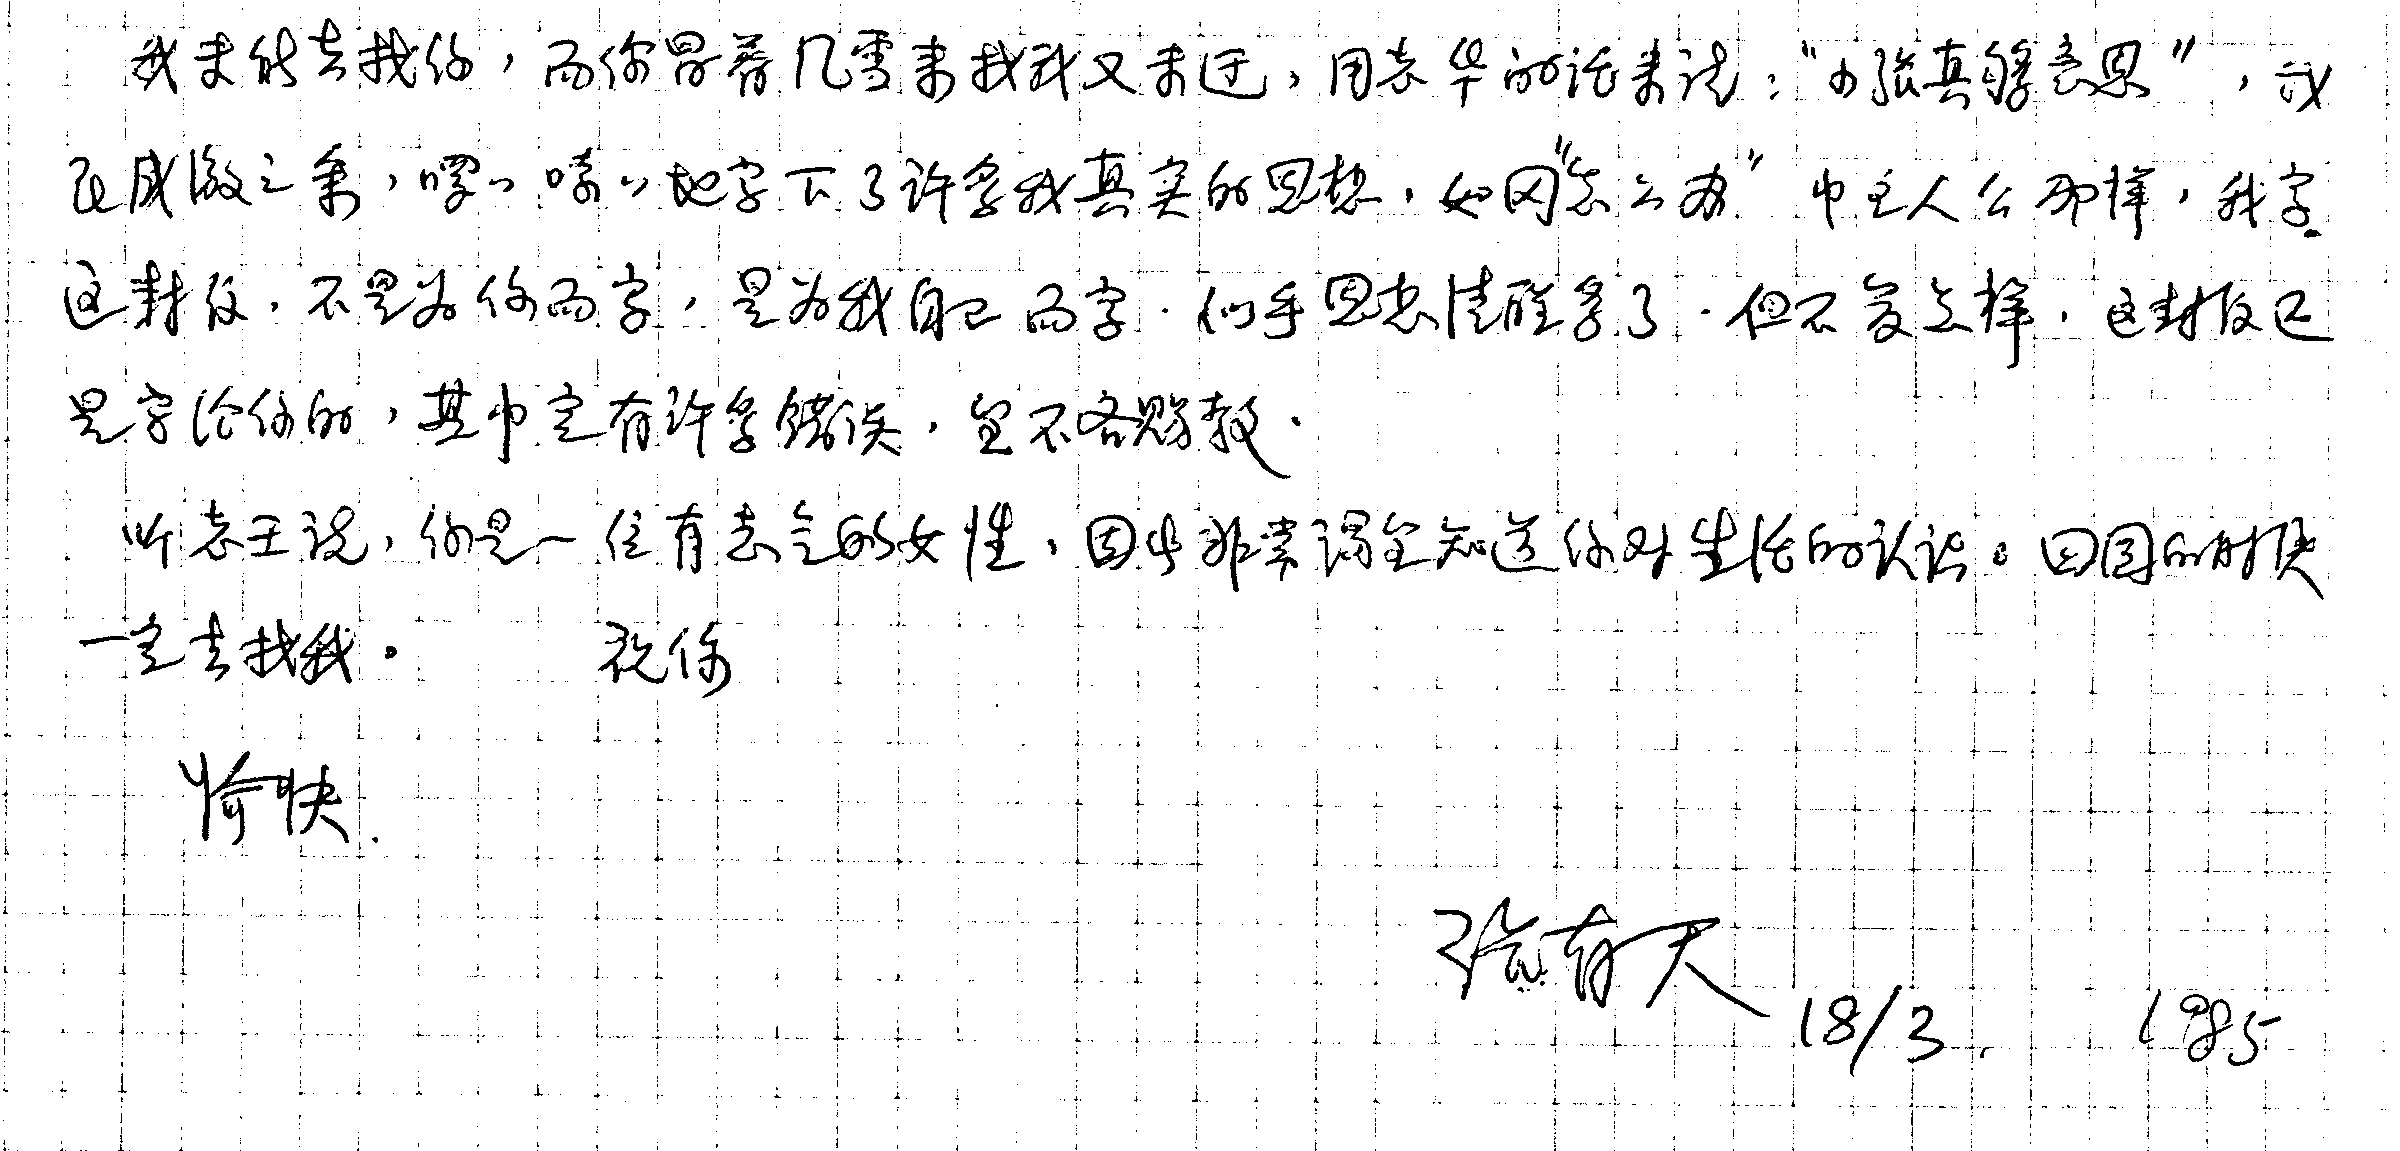 我未能去找你，而你冒着风雪来找我又未遇，用老华的话来说："小张真够意思"，我
在感激之余，啰〃嗦〃地写下了许多我真实的思想，如同"怎么办"中主人公那样，我写
这封信，不是为你而写，是为我自己而写．似乎思想清醒多了．但不管怎样，这封信已
是写给你的，其中定有许多错误，望不吝赐教．
听老王说，你是一位有志气的女性，因此非常渴望知道你对生活的认识。回国的时候
一定去找我。 祝你
愉快．
张有天
18/3. 1985